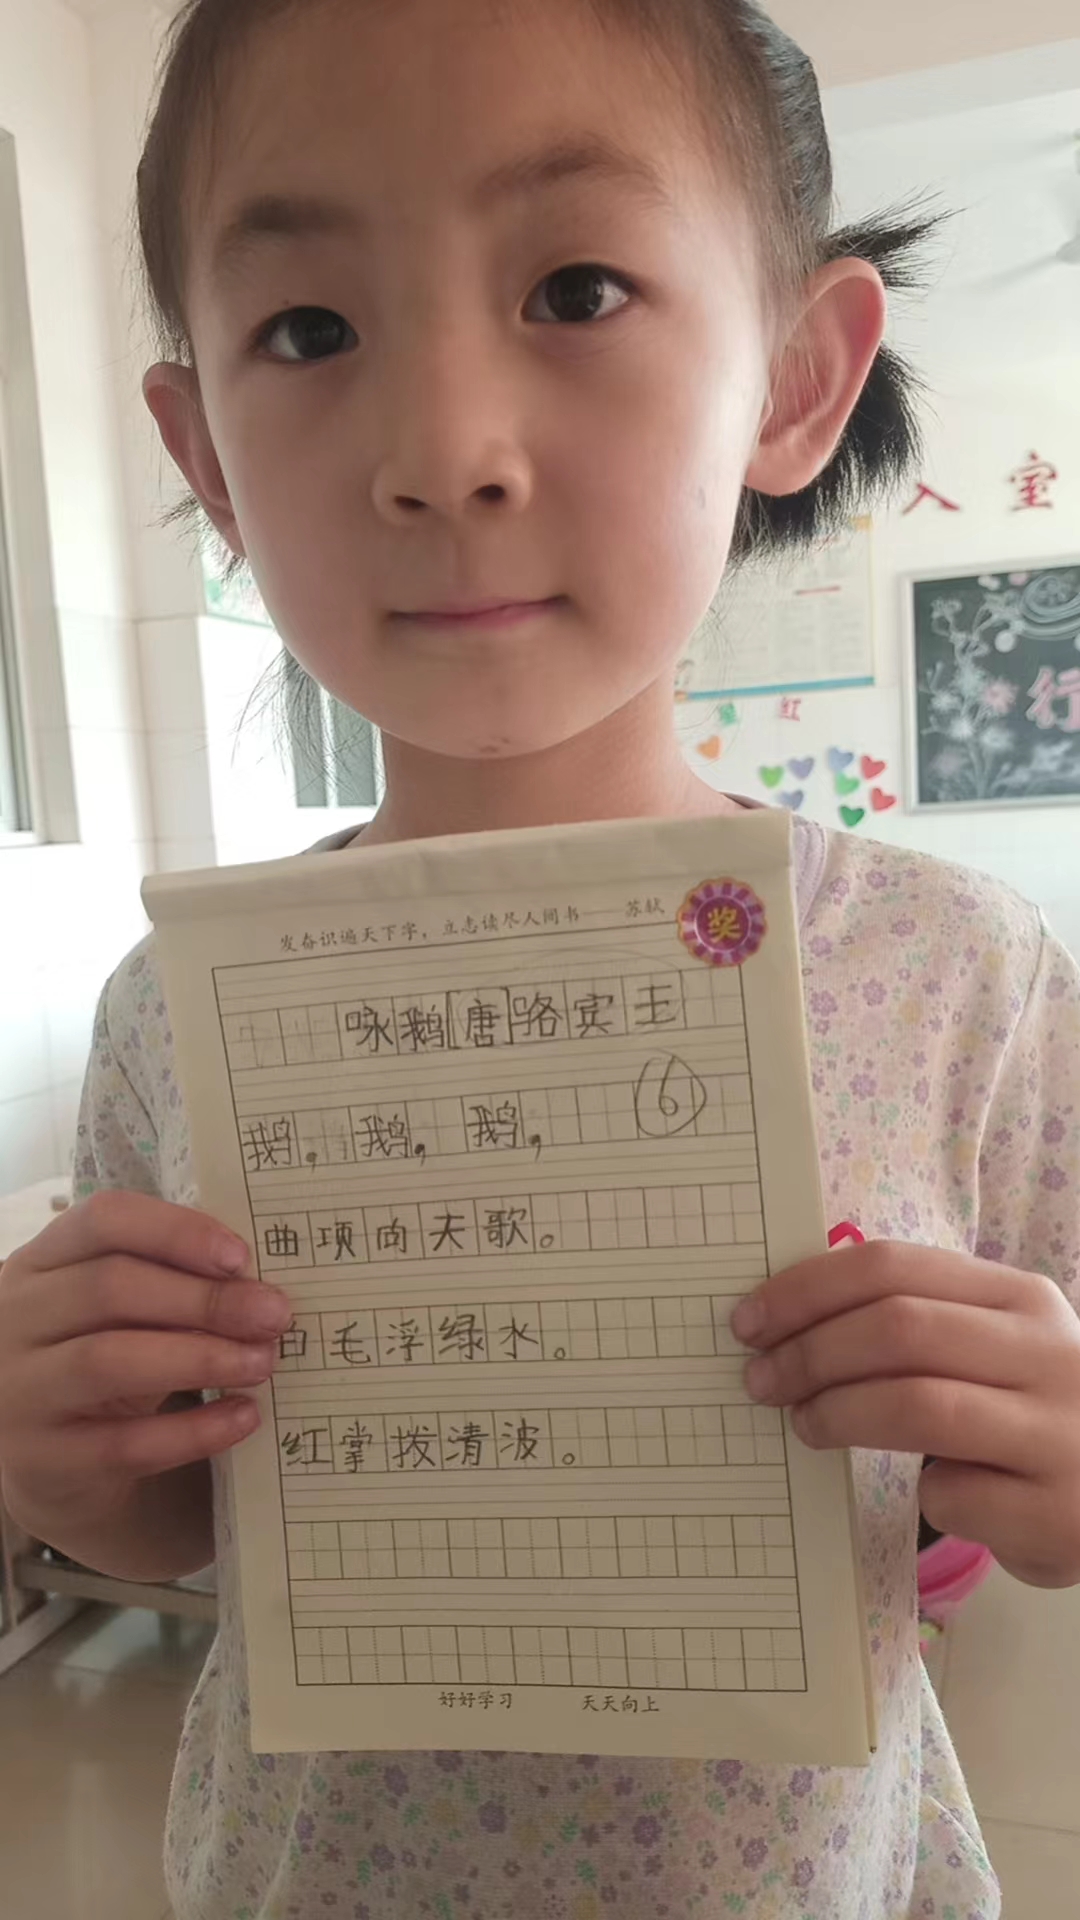 入室
行
红
发奋识遍天下字，立志读尽人间书——苏轼
奖
咏鹅[唐]骆宾王
⑥
鹅，鹅，鹅，
曲项向天歌。
白毛浮绿水。
红掌拨清波。
好好学习 天天向上